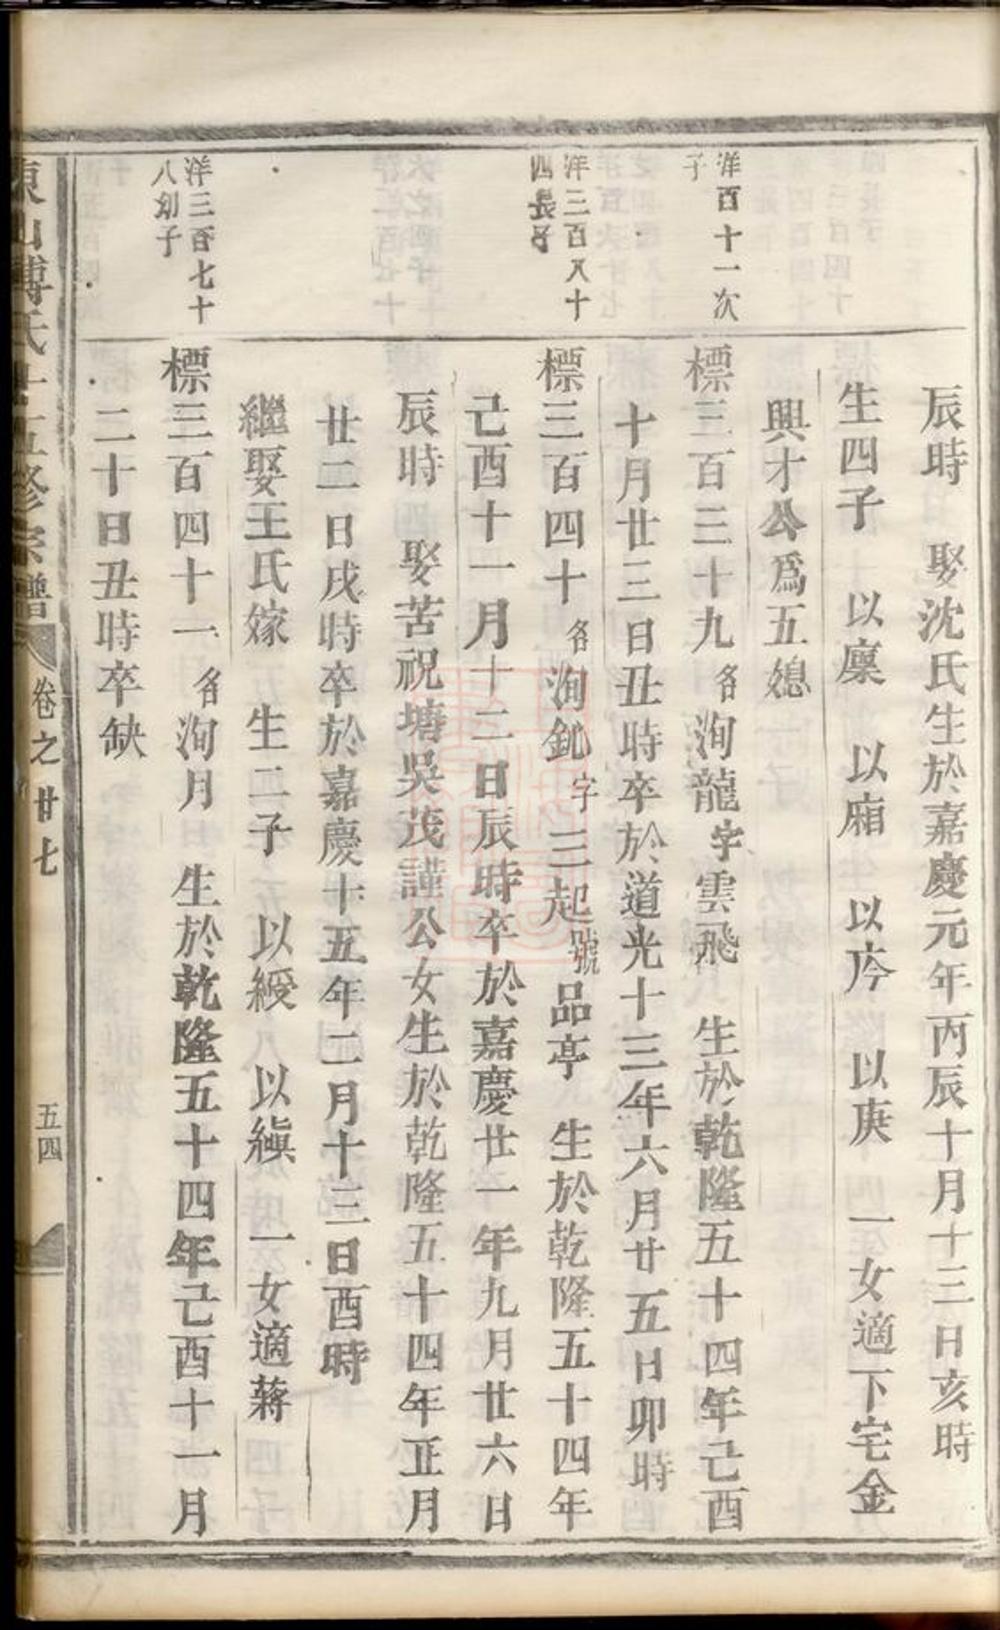 辰時　娶沈氏生於嘉慶元年丙辰十月十三日亥時
生四子　以廩　以廂　以庎　以庚　一女適下宅金
興才公為五媳
洋百十一次
子
標三百三十九名洵龍字雲飛　生於乾隆五十四年己酉
十月廿三日丑時卒於道光十三年六月廿五日卯時
洋三百八十
四長子
標三百四十名洵釚字三起號品亭　生於乾隆五十四年
己酉十一月十二日辰時卒於嘉慶廿一年九月廿六日
辰時　娶苦祝塘吳茂謹公女生於乾隆五十四年正月
廿二日戌時卒於嘉慶十五年二月十三日酉時
繼娶王氏嫁　生二子　以綬　以縝　一女適蔣
洋三百七十
八幼子
標三百四十一名洵月　生於乾隆五十四年己酉十一月
二十日丑時卒缺
東山傅氏十五修宗譜
卷之廿七
五四